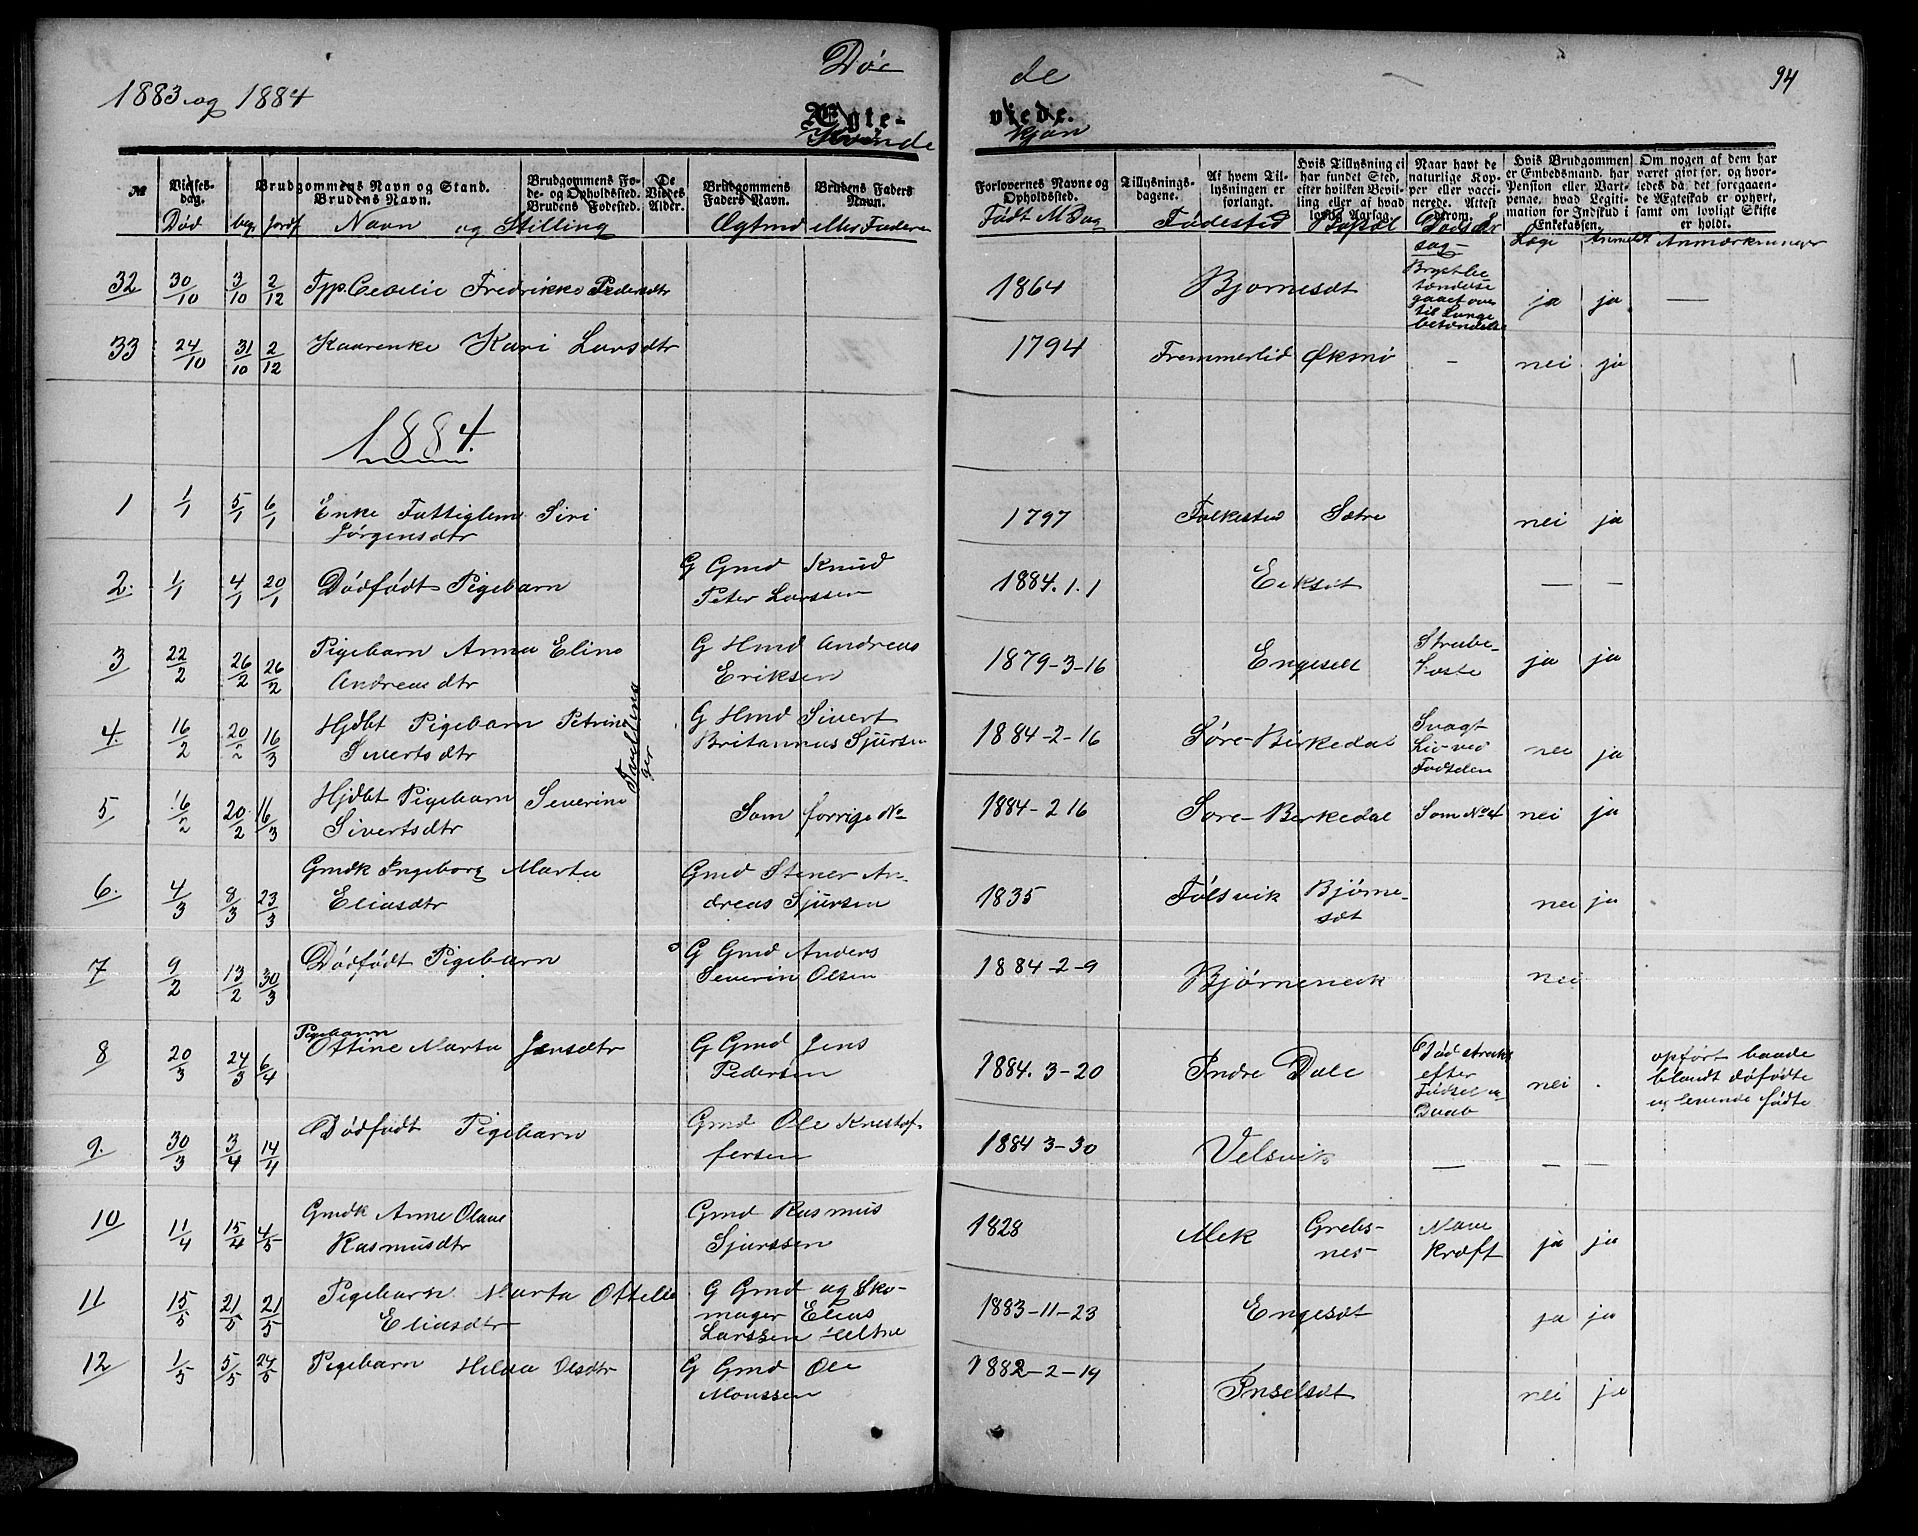 1883 og 1884
Døe de
94
Ægte- viede.
Kvinde kjøn
№ Vielses-dag. Brudgommens Navn og Stand. Brudens Navn. Brudgommens Fø-de- og Opholdssted. Brudens Fødested. De Viedes Alder. Brudgommens Faders Navn. Brudens Faders Navn. Forlovernes Navne og Opholdssted. Tillysnings-dagene. Af hvem Til-lysningen er forlangt. Hvis Tillysning ei har fundet Sted, efter hvilken Bevil-ling eller af hvad lovlig Aarsag. Naar havt de naturlige Kop-per eller vacci-nerede. Attest derom. Hvis Brudgommen er Embedsmand, har Pension eller Vart-penge, hvad Legiti-mation for Indskud i Enkekassen. Om nogen af dem har været gift før, og hvor-ledes da det foregaaen-de Ægteskab er ophørt, samt om lovligt Skifte er holdt.
Død begr Jordf Navn og Stilling Ægtmd eller Fader Født M Dag Fødested Bopæl Dødsår sag Læge Anmeldt Anmærkninger
32 30/10 3/10 2/12 Tpp. Cecelie Fredrikke Pedersdtr 1864 Bjørnesdt Brystbe tændelse gaaet over til Lunge betændelse ja ja —
33 24/10 31/10 2/12 Kaarenke Kari Larsdtr 1794 Fremmerlid Øksnø - nei ja
1884.
1 1/1 5/1 6/1 Enke Fattiglem Siri 1797 Folkestad Sætre nei ja
Jørgensdtr
2. 1/1 4/1 20/1 Dødfødt Pigebarn G Gmd Knud 1884.1.1 Eiksdt — —
Peter Larssen
3 22/2 26/2 26/2 Pigebarn Anna Elino G Hmd Andreas 1879-3-16 Engesdt Strube-hoste ja ja
Andreasdtr Eriksen
4. 16/2 20/2 16/3 Hjdbt Pigebarn Petrine Tvillinger G Hmd Sivert 1884-2-16 Søre-Birkedal Svagt Liv ved Fødselen nei ja
Sivertsdtr Britannus Sjursen
5 16/2 20/2 16/3 Hjdbt Pigebarn Severine Som forrige No 1884-2 16 Søre-Birkedal Som No 4 nei ja
Sivertsdtr
6. 4/3 8/3 23/3 Gmdk Ingeborg Marta Gmd Stener An- 1835 Følsvik Bjørne-sdt nei ja
Eliasdtr dreas Sjursen
7 9/2 13/2 30/3 Dødfødt Pigebarn G Gmd Anders 1884-2-9 Bjørnevik nei
Severin Olsen
8 20/3 24/3 6/4 Pigebarn
Ottine Marta Jensdtr G Gmd Jens 1884. 3-20 Indre Dale Død straks efter Fødsel og Daab nei . opført baade blandt døfødte og levende fødte
Pedersen
9. 30/3 3/4 14/4 Dødfødt Pigebarn Gmd Ole Kristof- 1884 3-30 Velsvik — — —
fersen
10 11/4 15/4 4/5 Gmdk Anne Olave Gmd Rasmus 1828 Mek Grebs-nes Mave kræft ja ja
Rasmusdtr Sjurssen
11 15/5 21/5 21/5 Pigebarn Marta Ottelie G Gmd og Sko- 1883-11-23 Engesdt ja ja
Eliasdtr mager Elias
Larssen
12 1/5 5/5 24/5 Pigebarn Hilda Olsdtr G Gmd Ole 1882-2-19 Inselsdt nei ja
Monssen